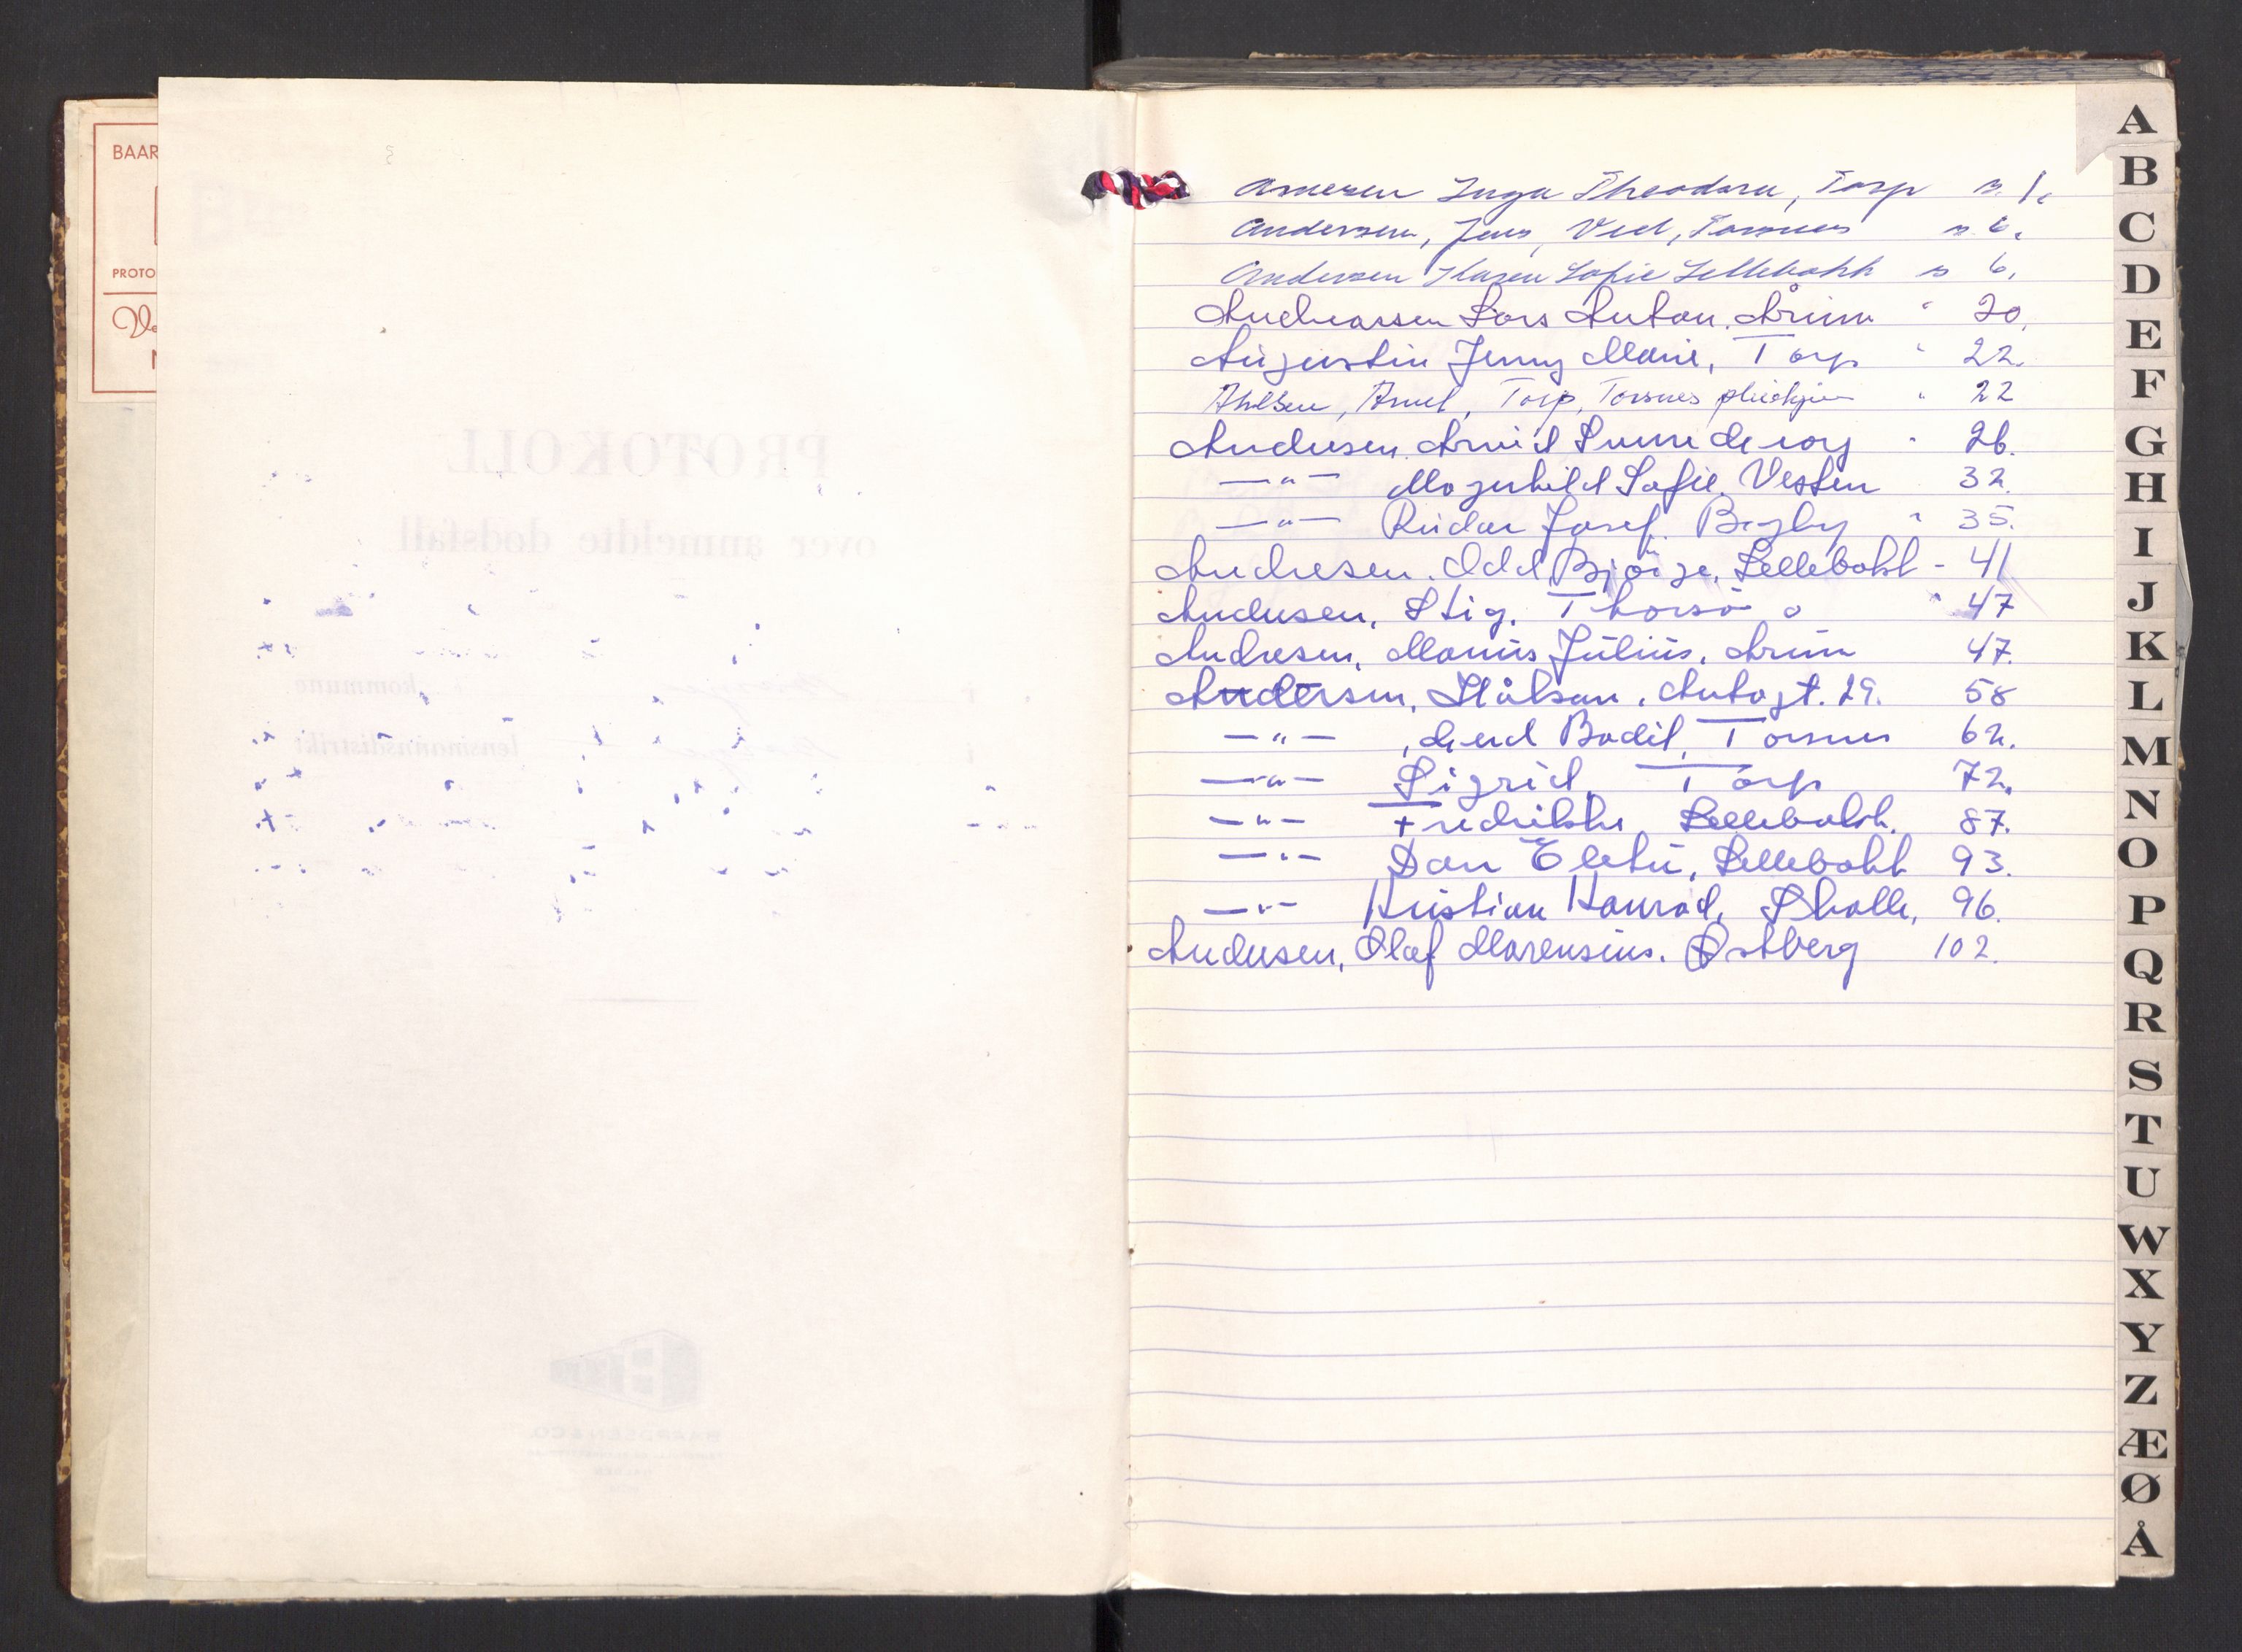 BAAR
PROTO
PROTOKOLL
over anmeldte dødsfall
kommune
lensmannsdistrikt
BAARDSEN & CO.
Inga Theodora, Torp s. 1.
Andersen, Jens, Ved, Torsnes s. 6.
Andersen Karen Sofie Lellebakk s 6.
Andreassen Lars Anton. Årum " 20.
Augustin Jenny Marie, Torp " 22.
Ahlsen, Arvid, Torp, Torsnes pleiehjem " 22
Andresen. Arvid " 26.
—"— Magnhild Sofie. Vesten 32.
—"— Reidar Josef. Begby " 35.
Andresen. Odd Bjørge, Lellebakk - 41
Andresen, Stig. Thorsø " 47
Andresen, Marius Julius. Årum 47.
Andersen, Håkan. 29. 58
—"— , Gerd Bodil, Torsnes 62.
—"— Sigrid, Torp 72.
—"— Fredrikke Lellebakk. 87.
—"— Dan Lellebakk 93.
—"— Kristian Konrad, Skolle, 96.
Andresen, Olaf Marensius. Østberg 102.
A
B
C
D
E
F
G
H
I
J
K
L
M
N
O
P
Q
R
S
T
U
W
X
Y
Z
Æ
Ø
Å